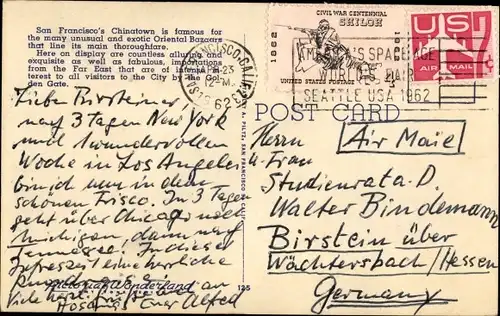 San Francisco's Chinatown is famous for
the many unusual and exotic Oriental Bazaars
that line its main thoroughfare.
Here on display are countless alluring and
exquisite as well as fabulous, importations
from the Far East that are of intense in-
terest to all visitors to the City by the Gol-
den Gate.
SAN FRANCISCO, CALIF.
1962
CIVIL WAR CENTENNIAL
SHILOH
UNITED STATES POSTAGE
4¢
US
AIR MAIL
AMERICA'S SPACE AGE
WORLD'S FAIR
SEATTLE USA 1962
POST CARD
Liebe Birsteiner
nach 3 Tagen New York
und 1 wundervollen
Woche in Los Angeles
bin ich nun in dem
schönen Frisco. In 3 Tagen
geht über Chicago nach
Michigan, dann nach
Tennessee. In dieser
Jahreszeit eine herrliche
Pictorial Wonderland
135
Euer Alfred
Herrn
u. Frau
Air Mail
Studienrat a. D.
Walter Bindemann
Birstein über
Wächtersbach/Hessen
Germany